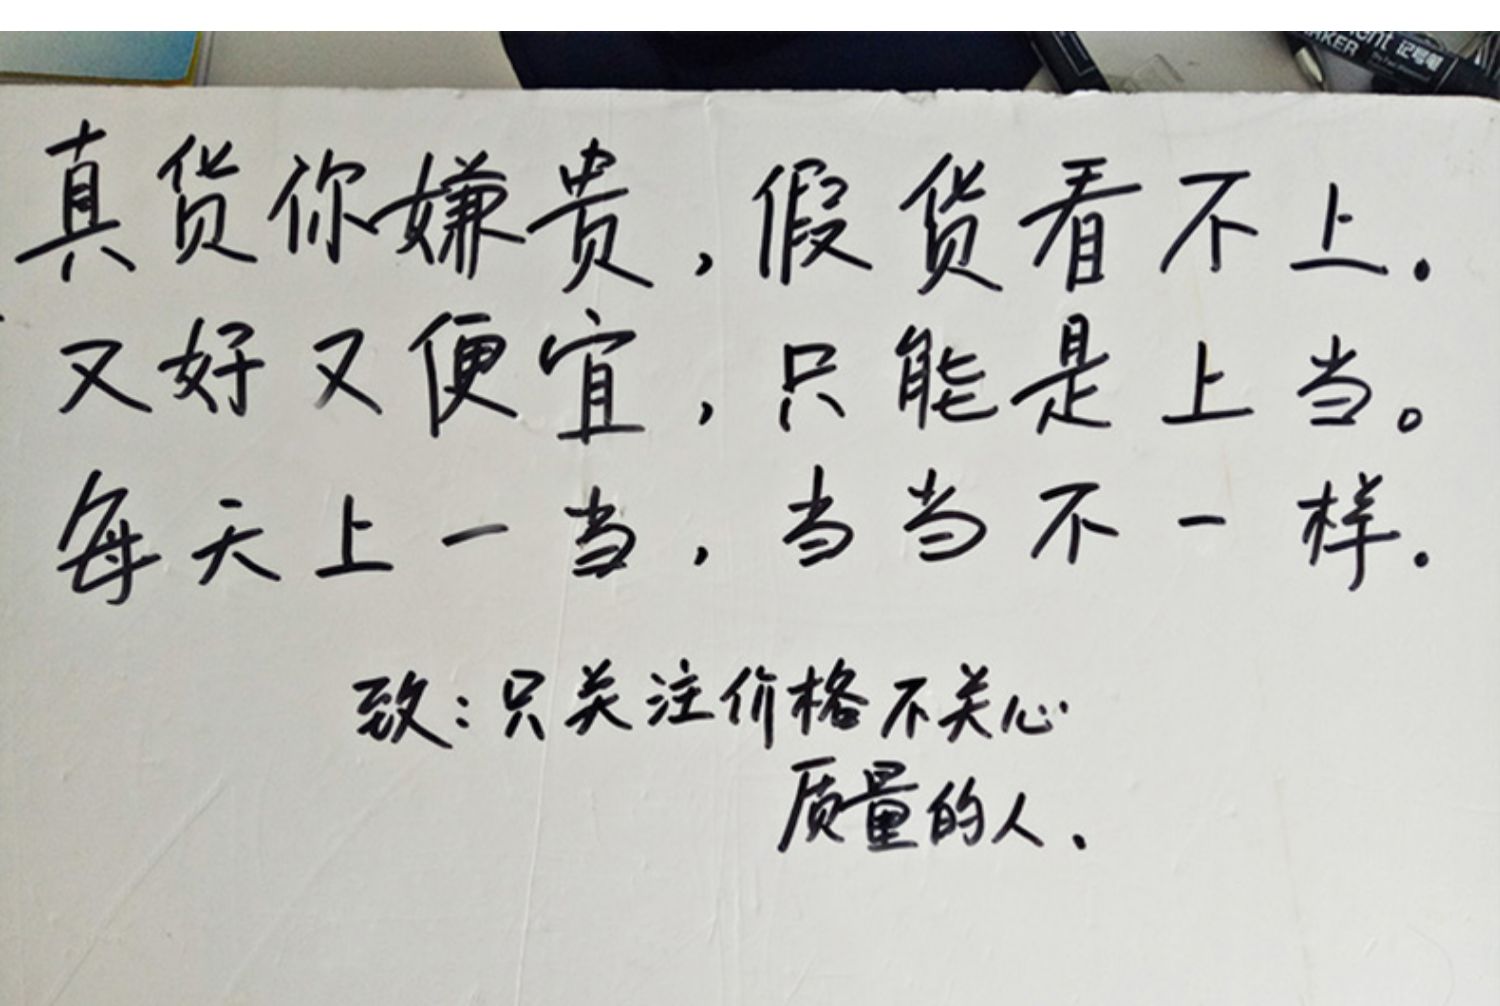 ent 记号笔
RKER
真货你嫌贵,假货看不上.
又好又便宜,只能是上当。
每天上一当,当当不一样.
致:只关注价格不关心
质量的人.